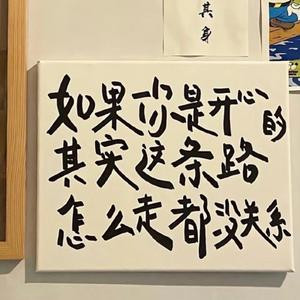 其
身
如果你是开心的
其实这条路
怎么走都没关系